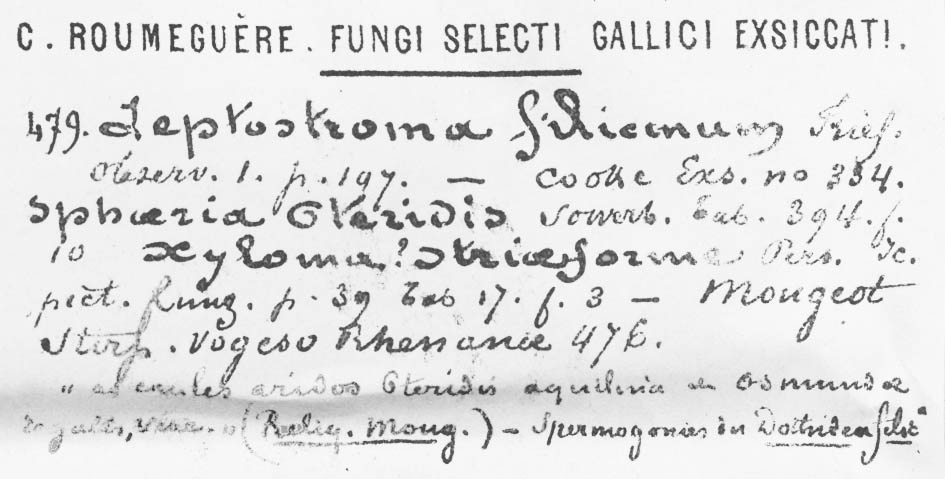 C. ROUMEGUÈRE. FUNGI SELECTI GALLICI EXSICCATI.
479. Leptostroma filicinum Fries.
Observ. 1. p. 197. — Cooke Exs. no 354.
Sphæria Pteridis Sowerb. tab. 394. f.
10 Xyloma? striæforme Pers. Ic.
pict. fung. p. 39 tab 17. f. 3 — Mougeot
Stirp. Vogeso Rhenanæ 476.
caules aridos Pteridis aquilinia Osmundæ
(Reliq. Moug.) — Spermogonies du Dothidea filic